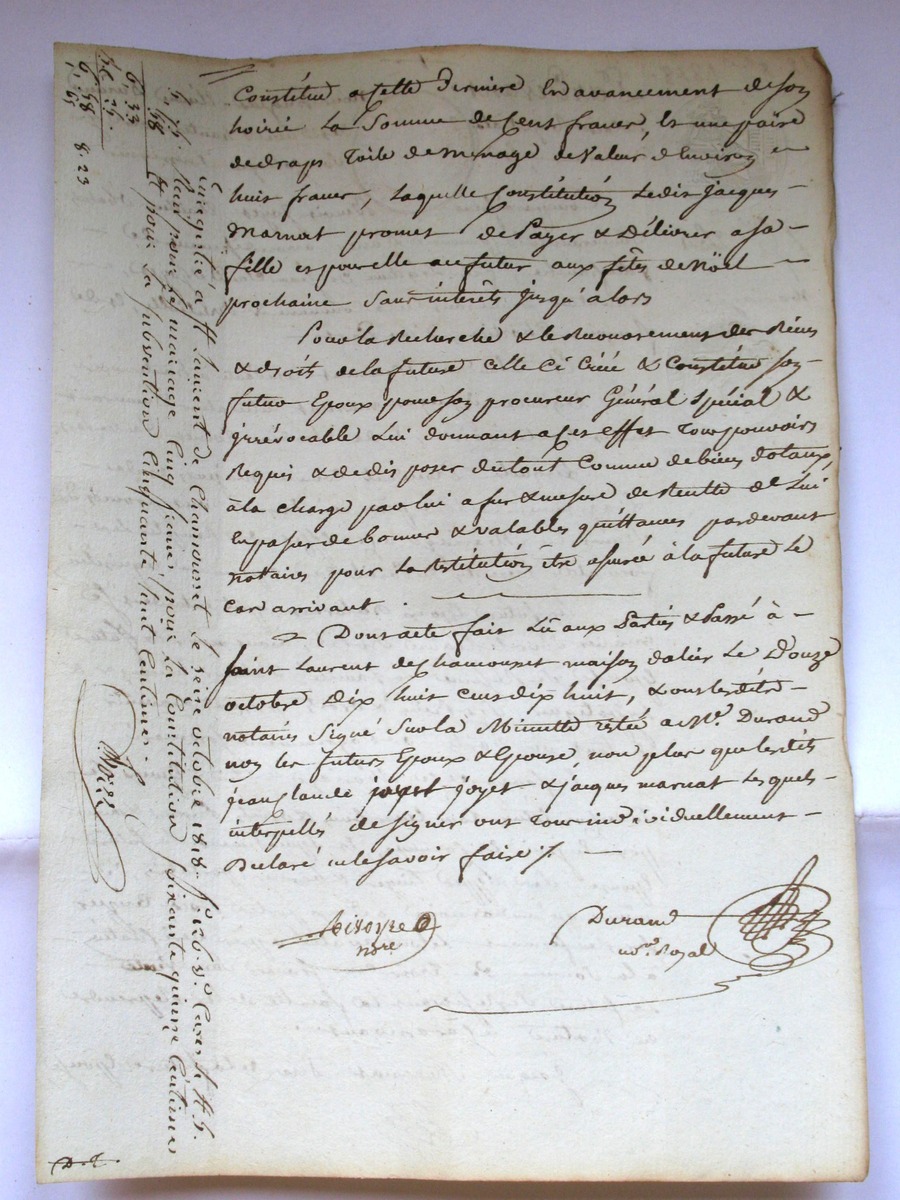 Constitué a cette Derniere En avancement de son
hoirie La Somme de Cent francs, Et une paire
de draps Toile de menage de Valeur d'Environ
huit francs, Laquelle Constitution Ledit Jacques
Marnat promet de Payer & Délivrer a sa
fille et pour elle au futur aux fêtes de Nöel
prochaine Sans intérêts jusqu'alors
Pour la Recherche & le Recouvrement des Biens
& droits de la future Celle Ci Créé & Constitue son
futur Epoux pour son procureur Général Spécial &
irrévocable Lui donnant a Cet effet Tous pouvoirs
Requis & de disposer du tout Comme de biens dotaux,
à la charge par lui a fur & mesure de Recette de Lui
En passer de bonnes & valables quittances pardevant
notaires pour La Restitution être assurée à la future Le
Cas arrivant.
Dont acte fait Lu aux Parties & Passé à
Saint Laurent de Chamousset maison dalier Le Douze
octobre Dix huit Cent dix huit, & ont lesdits
notaires Signé Sur la Minutte restée a Me. Durand
non les futurs Epoux & Epouse, non plus que lesdits
jean Claude joyet & jacques marnat Lesquels
interpellés de signer ont Tous individuellement
Déclaré ne le savoir faire ./.
nore.
Durand
nore. Royal
Enregistré à St Laurent de Chamousset le seize octobre 1818. fo. 126. vo. Cases 4 et 5.
Reçu pour le mariage Cinq francs, pour la Constitution soixante quinze Centimes
Et pour la subvention Cinquante huit Centimes.
8. 23
D. R.